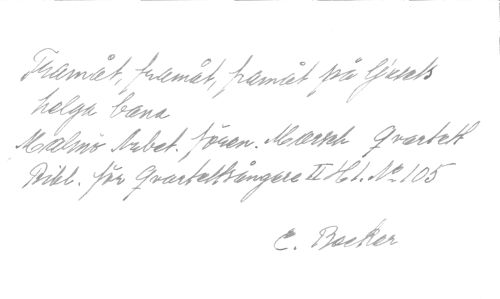 Framåt, framåt, framåt på ljusets
helga bana
Malmö Arbet. fören. Marsch Qvartett
Bibl. för Qvartettsångare II H 1. No 105
E. Becker